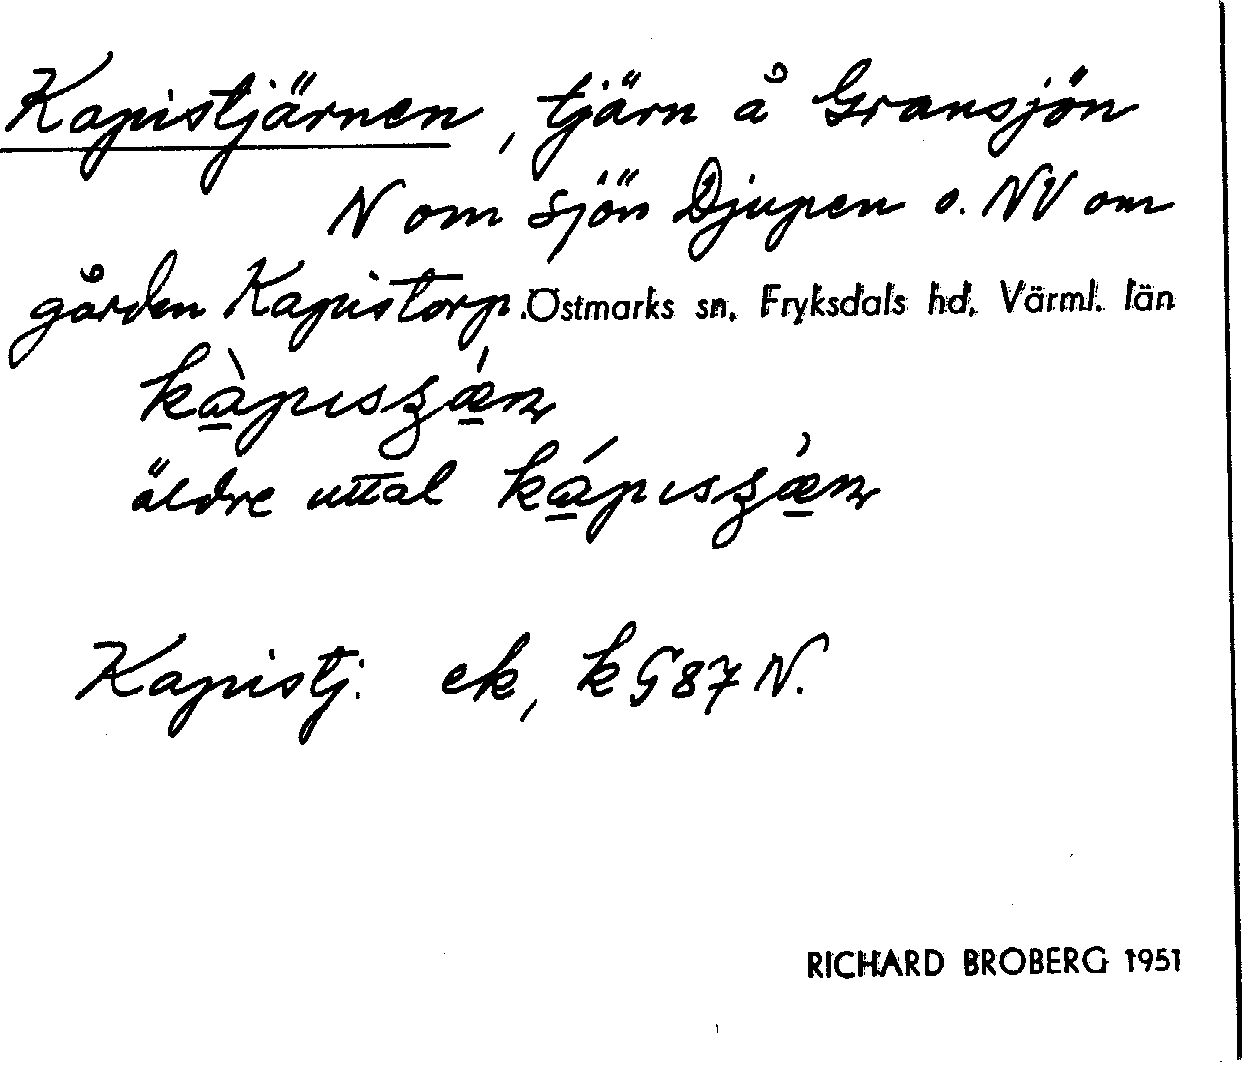 Kapistjärnen, tjärn å Gransjön
N om sjön Djupen o. NV om
gården Kapistorp. Östmarks sn, Fryksdals hd, Värml. län
kàpısʒǽn
äldre uttal kápısʒæ̀n
Kapistj. ek, k G 87 N.
RICHARD BROBERG 1951